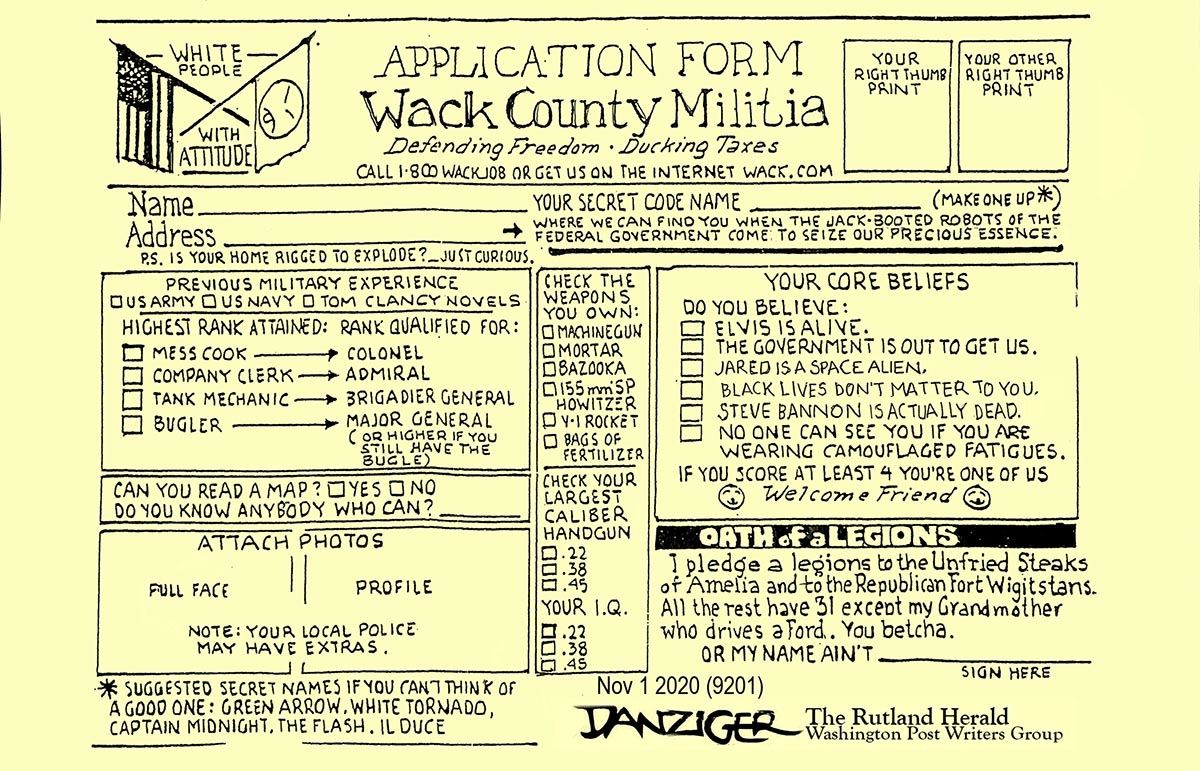 WHITE
PEOPLE
WITH
ATTITUDE
APPLICATION FORM
Wack County Militia
Defending Freedom · Ducking Taxes
CALL 1·800 WACKJOB OR GET US ON THE INTERNET WACK.COM
YOUR
RIGHT THUMB
PRINT
YOUR OTHER
RIGHT THUMB
PRINT
Name
Address
P.S. IS YOUR HOME RIGGED TO EXPLODE?_JUST CURIOUS.
YOUR SECRET CODE NAME (MAKE ONE UP*)
WHERE WE CAN FIND YOU WHEN THE JACK·BOOTED ROBOTS OF THE
FEDERAL GOVERNMENT COME TO SEIZE OUR PRECIOUS ESSENCE.
PREVIOUS MILITARY EXPERIENCE
US ARMY US NAVY TOM CLANCY NOVELS
HIGHEST RANK ATTAINED: RANK QUALIFIED FOR:
MESS COOK → COLONEL
COMPANY CLERK → ADMIRAL
TANK MECHANIC → BRIGADIER GENERAL
BUGLER → MAJOR GENERAL
(OR HIGHER IF YOU
STILL HAVE THE
BUGLE)
CAN YOU READ A MAP? YES NO
DO YOU KNOW ANYBODY WHO CAN?
ATTACH PHOTOS
FULL FACE
PROFILE
NOTE: YOUR LOCAL POLICE
MAY HAVE EXTRAS.
* SUGGESTED SECRET NAMES IF YOU CAN'T THINK OF
A GOOD ONE: GREEN ARROW, WHITE TORNADO,
CAPTAIN MIDNIGHT, THE FLASH. IL DUCE
CHECK THE
WEAPONS
YOU OWN:
MACHINEGUN
MORTAR
BAZOOKA
155mm SP
HOWITZER
V·1 ROCKET
BAGS OF
FERTILIZER
CHECK YOUR
LARGEST
CALIBER
HANDGUN
.22
.38
.45
YOUR I.Q.
.22
.38
.45
YOUR CORE BELIEFS
DO YOU BELIEVE:
ELVIS IS ALIVE.
THE GOVERNMENT IS OUT TO GET US.
JARED IS A SPACE ALIEN.
BLACK LIVES DON'T MATTER TO YOU.
STEVE BANNON IS ACTUALLY DEAD.
NO ONE CAN SEE YOU IF YOU ARE
WEARING CAMOUFLAGED FATIGUES.
IF YOU SCORE AT LEAST 4 YOU'RE ONE OF US
Welcome Friend
OATH of a LEGIONS
I pledge a legions to the Unfried Steaks
of Amelia and to the Republican Fort Wigitstans.
All the rest have 31 except my Grandmother
who drives a Ford. You betcha.
OR MY NAME AIN'T
SIGN HERE
Nov 1 2020 (9201)
DANZIGER
The Rutland Herald
Washington Post Writers Group